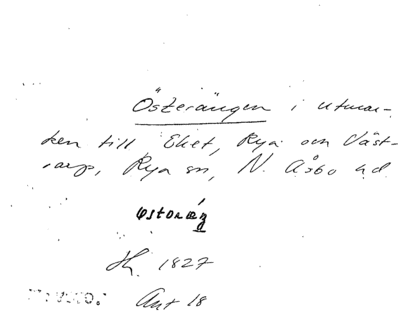 Österängen i utmar-
ken till Eket, Rya och Väst-
rarp, Rya sn, N. Åsbo hd.
ostoräŋ
Hr. 1827
Ant 18